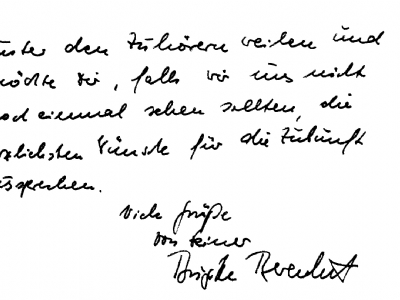 unter den Zuhörern weilen und
möchte Dir, falls wir uns nicht
noch einmal sehen sollten, die
herzlichsten Wünsche für die Zukunft
aussprechen.
Viele Grüße
von Deiner